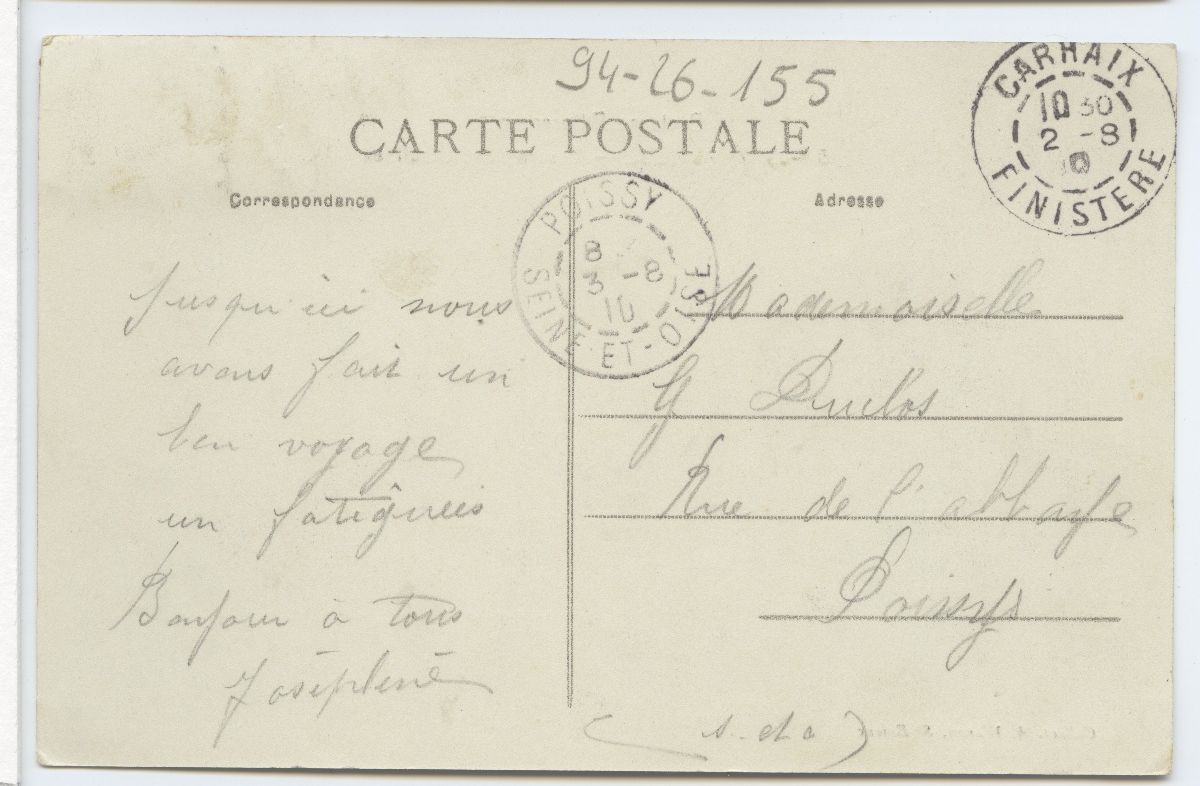 94-26-155
CARTE POSTALE
CARHAIX
10 30
2 -8
10
FINISTERE
Correspondance
Adresse
POISSY
8
3 -8
10
SEINE-ET-OISE
Jusqu'ici nous
avons fait un
bon voyage
un fatiguées
Bonjour à tous
Joséphine
Mademoiselle
G Duclos
Rue de l'abbaye
Poissy
(s. et o)